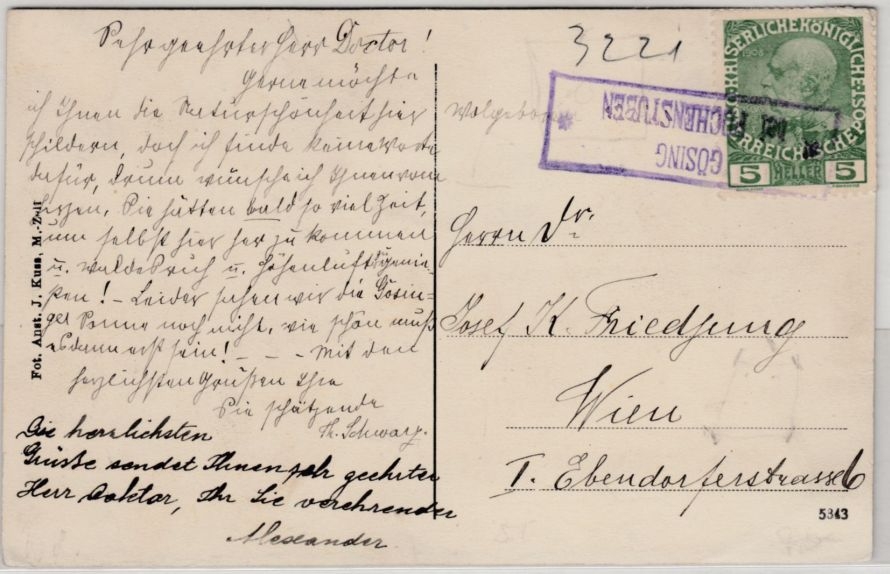 Sehr geehrter Herr Doctor!
Gerne möchte
ich Ihnen die Naturschönheit hier
schildern, doch ich finde keine Worte
dafür, drum wünsche ich Ihnen vom
Herzen, Sie hätten bald so viel Zeit,
um selbst hier her zu kommen
u. Waldesruh u. Höhenluft zu genie-
ßen! - Leider sehen wir die Gösin-
ger Sonne noch nicht, wie schön muß
es dann erst sein! - - - Mit den
herzlichsten Grüßen Ihre
Sie schätzende
Schwarz.
Die herzlichsten
Grüsse sendet Ihnen sehr geehrter
Herr Doktor, Ihr Sie verehrender
Alexander
Fot. Anst. J. Kuss, M.-Zell
3221
KAISERLICHE KÖNIGLICHE
ÖSTERREICHISCHE POST
1908
5 HELLER 5
GÖSING
bei PUCHENSTUBEN
Wolgeboren
Herrn Dr.
Josef K. Friedjung
Wien
I. Ebendorferstrasse 6
5343